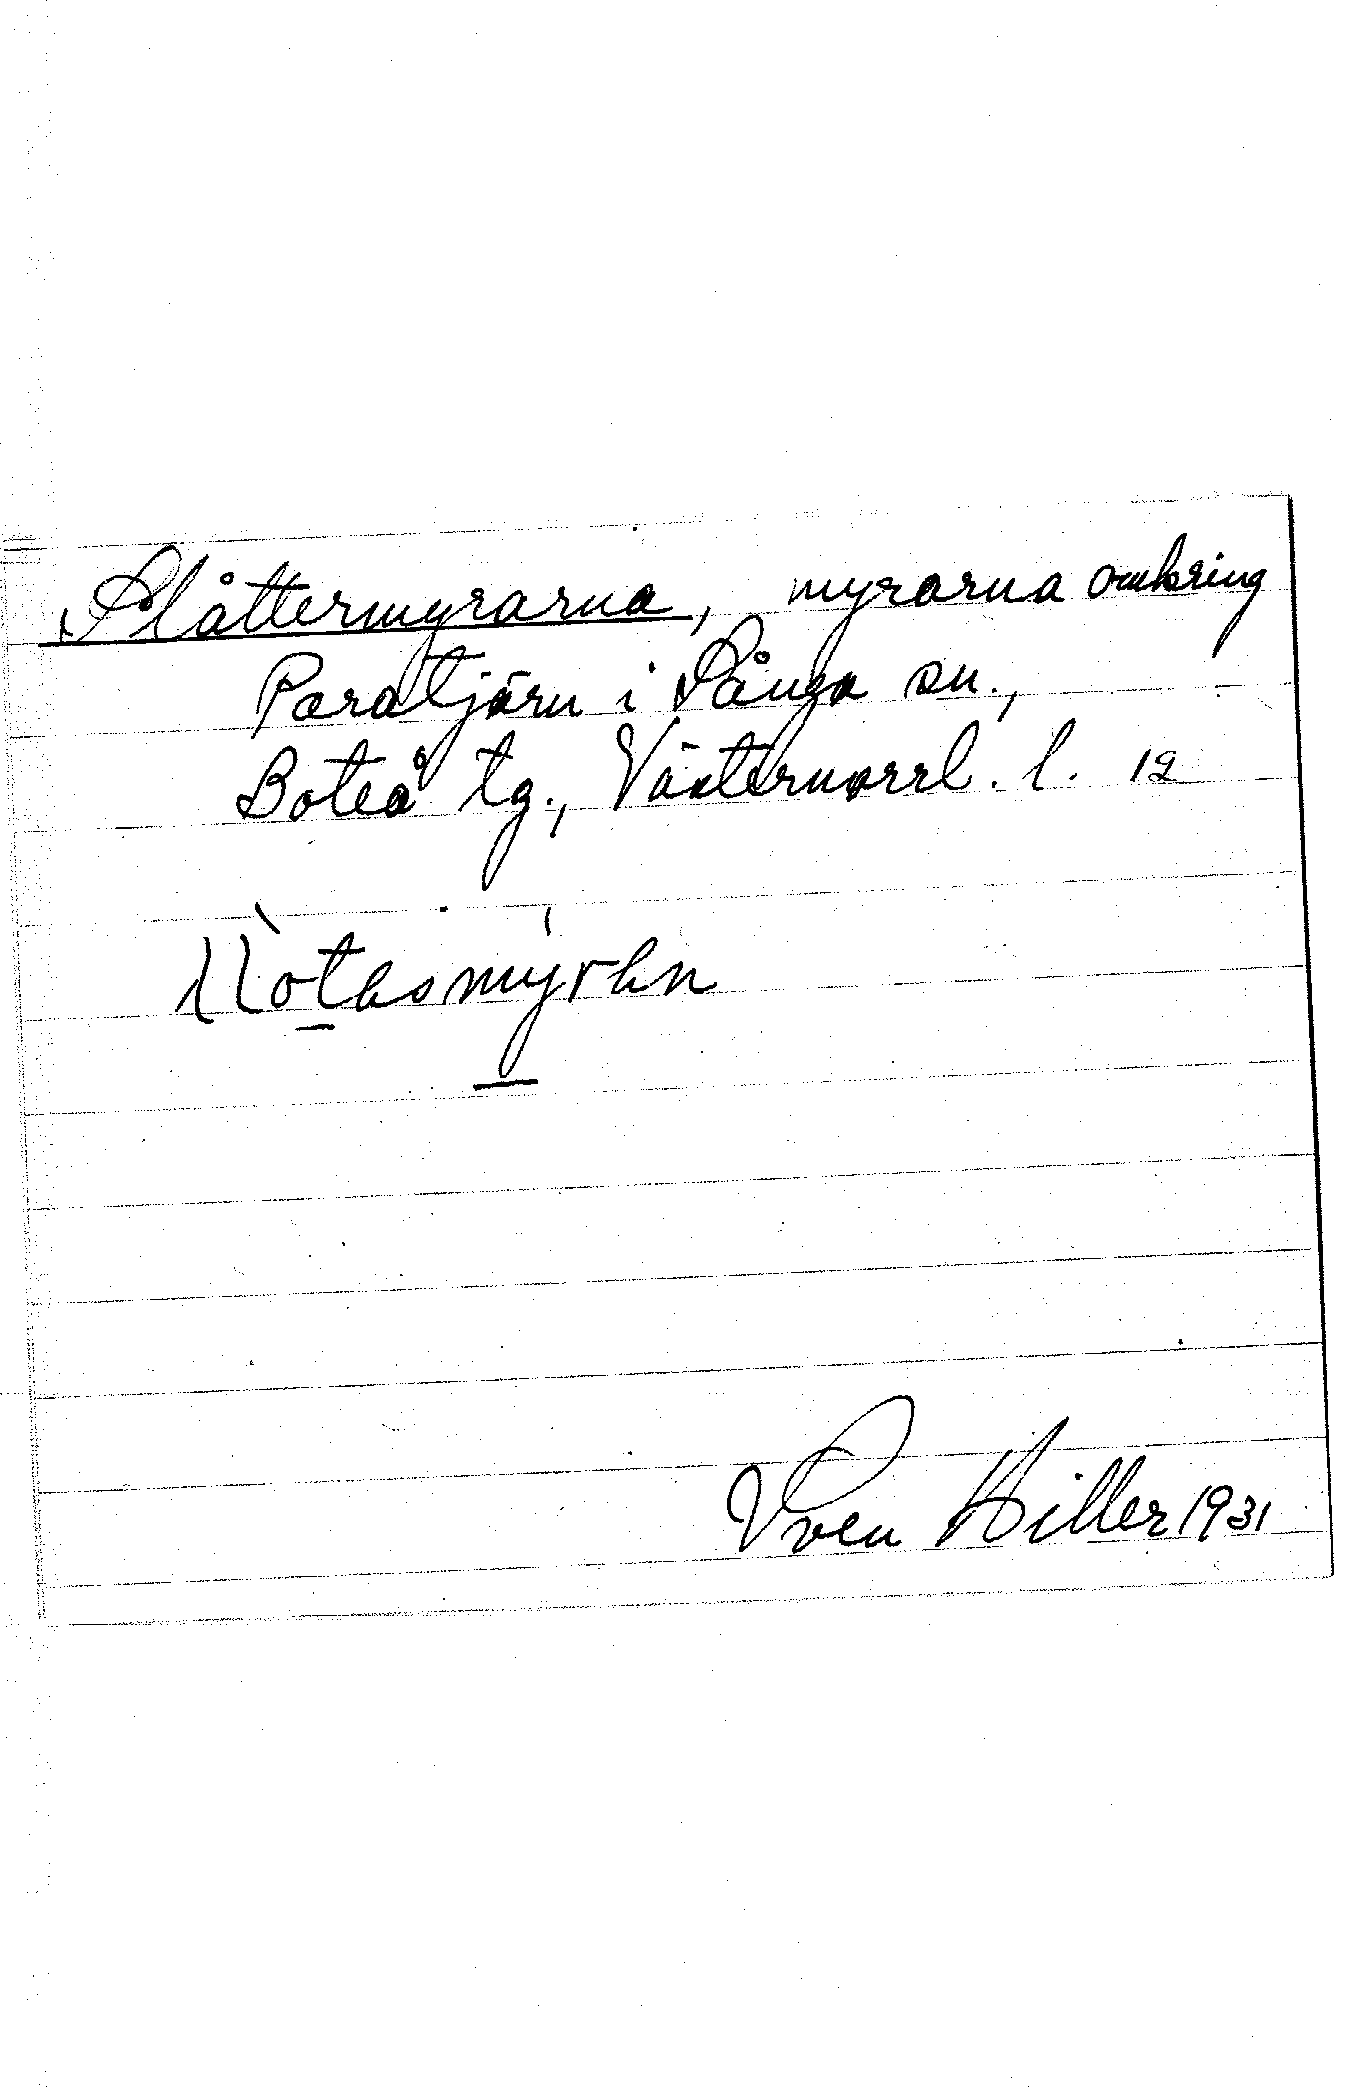 Slåttermyrarna, myrarna omkring
Paratjärn i Sånga sn.,
Boteå tg., Västernorrl. l. 12
Sven Hiller 1931